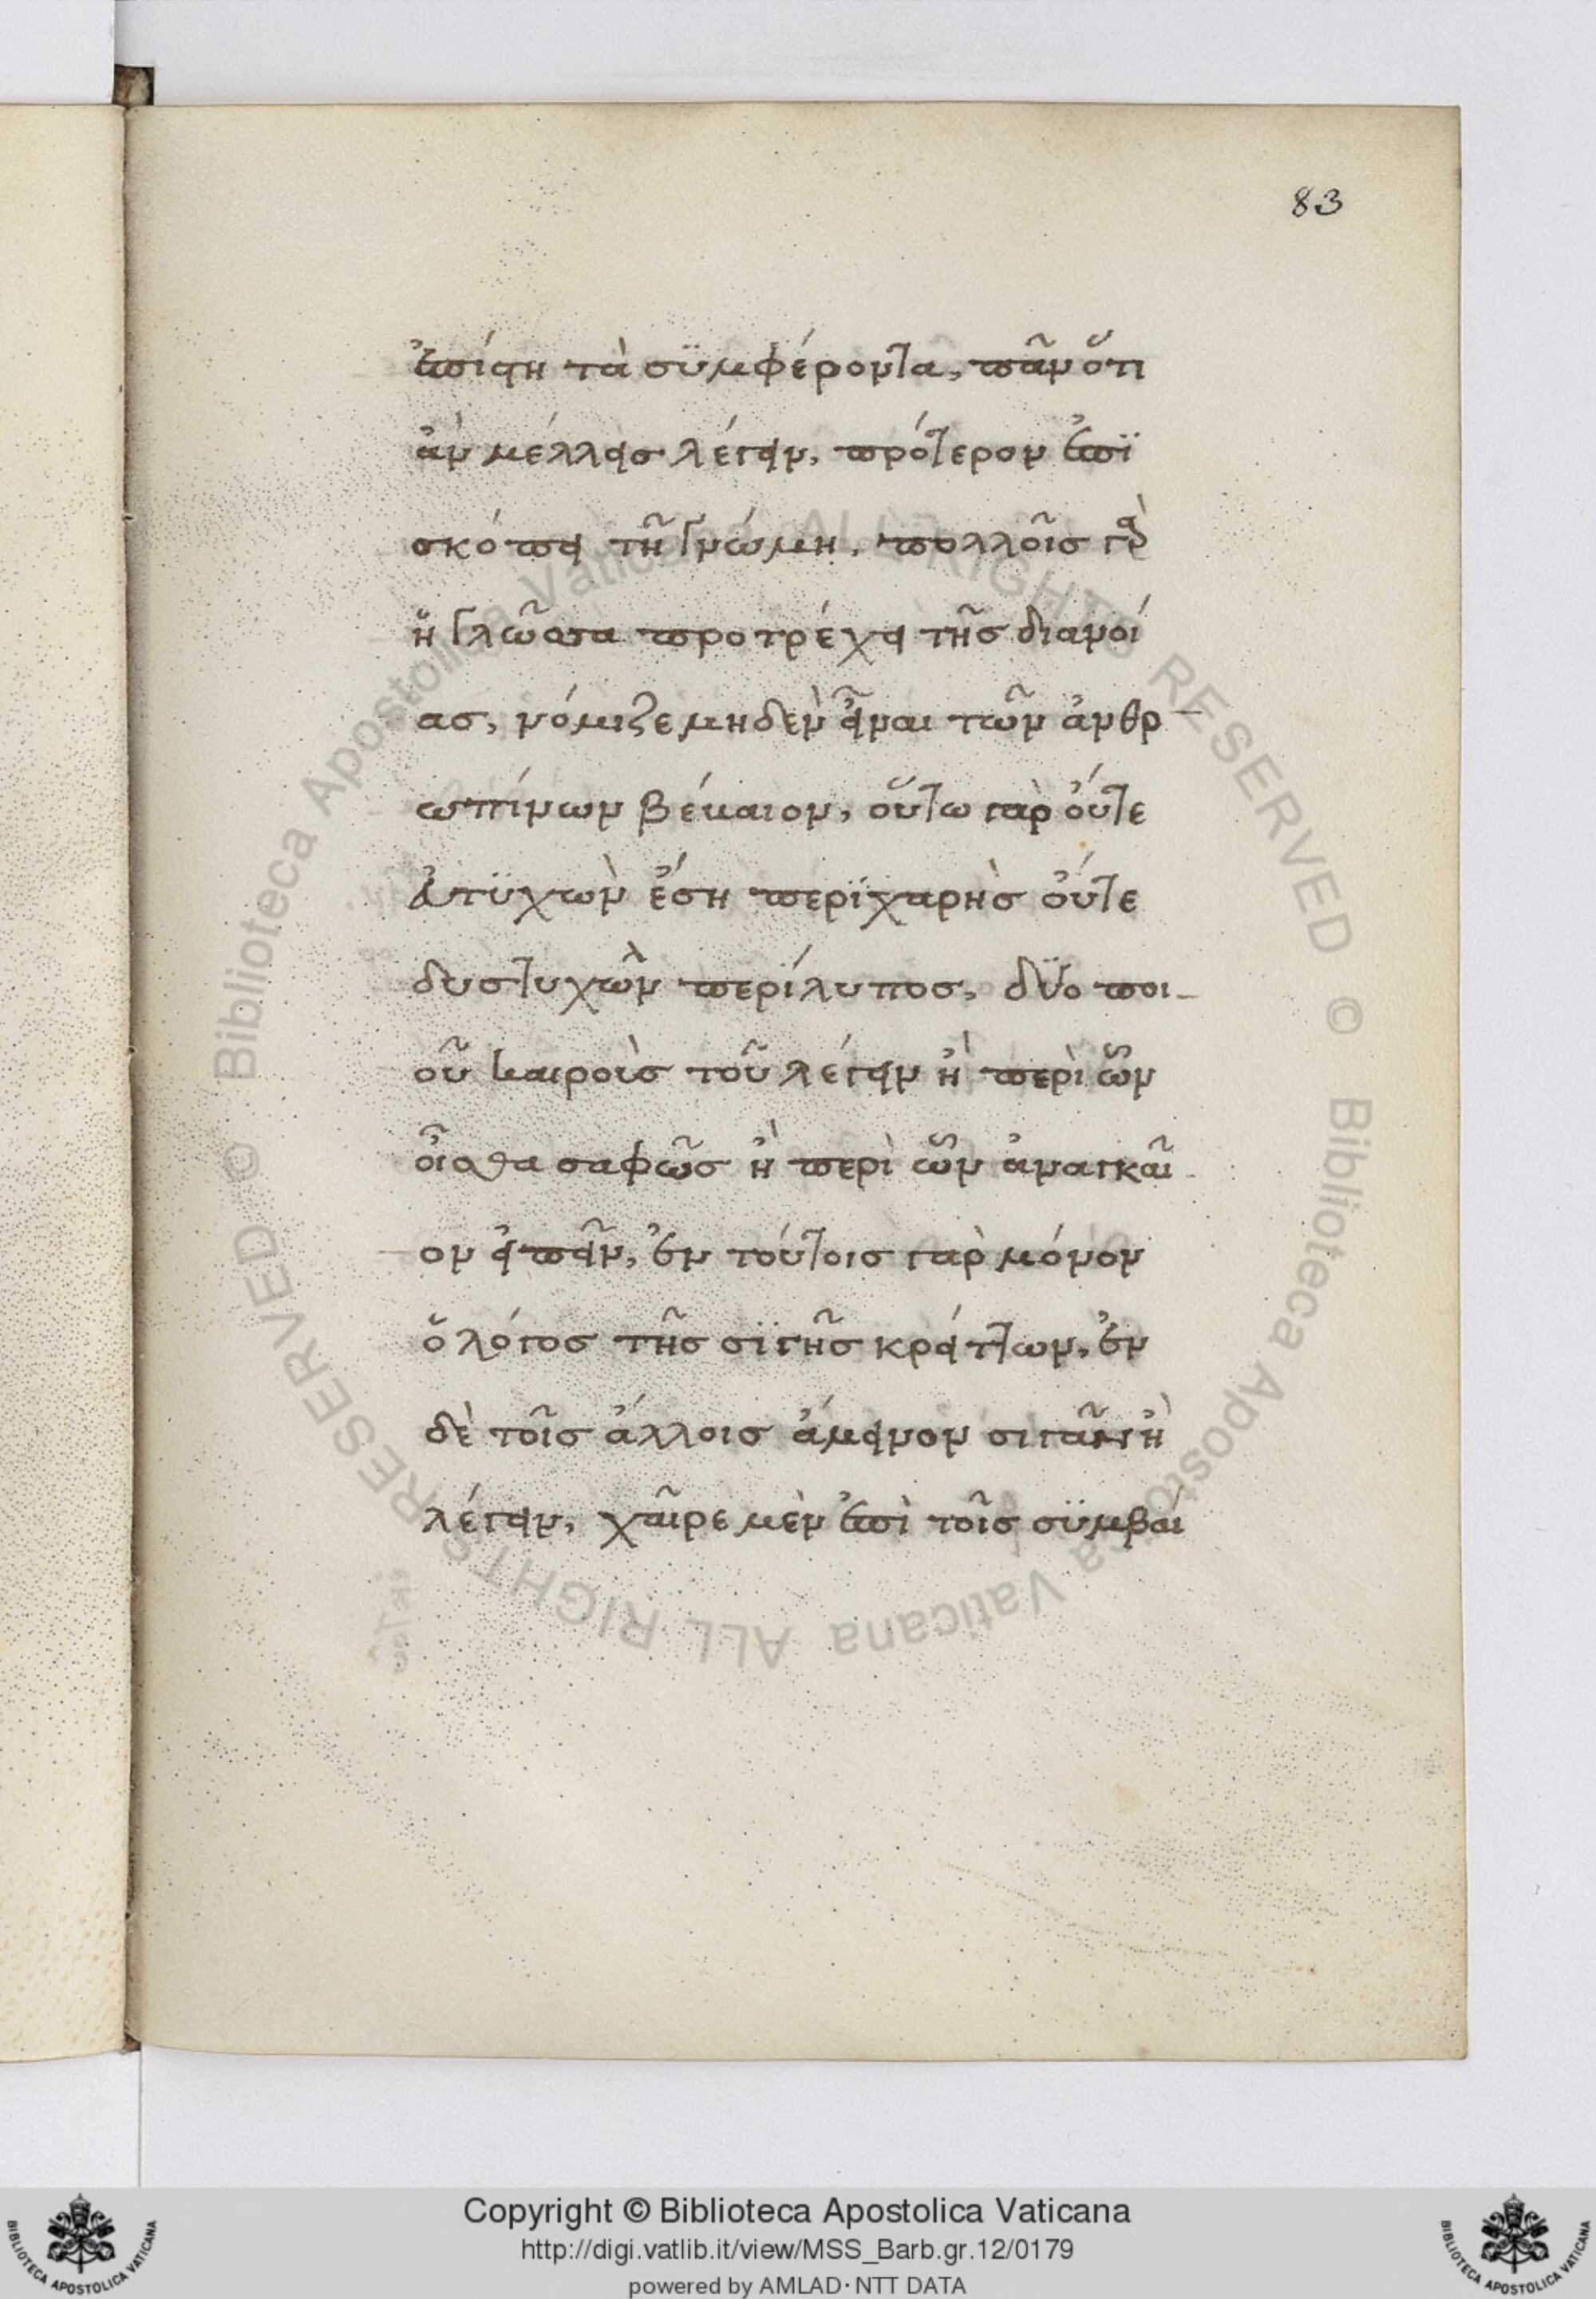 83
ἐπίῃ τὰ συμφέροντα, πᾶν ὅτι
ἂν μέλλεισ λέγειν, πρότερον ἐπϊ
σκόπει τῆ γνώμη, πολλοῖσ γὰρ
ἡ γλῶσσα προτρέχει τῆσ διανοί
ασ, νόμιζε μηδεν εἶναι των ἀνθρ-
ωπίνων βέβαιον, οὕτω γὰρ οὔτε
ἐυτϋχὼν ἔση περϊχαρὴσ οὔτε
δυστυχὼν περίλυποσ, δύο ποι-
οῦ καιροὺσ τοῦ λέγειν ἢ περὶ ὧν
οἶσθα σαφῶσ ἢ περὶ ὧν ἀναγκαῖ-
ον εἰπεῖν, ἐν τούτοισ γὰρ μόνον
ὁ λόγοσ τῆσ σϊγῆσ κρείττων, ἐν
δὲ τοῖσ ἄλλοισ ἄμεινον σιγᾶν ἢ
λέγειν, χαῖρε μὲν ἐπὶ τοῖσ συμβαί
Copyright © Biblioteca Apostolica Vaticana
http://digi.vatlib.it/view/MSS_Barb.gr.12/0179
powered by AMLAD·NTT DATA
© Biblioteca Apostolica Vaticana ALL RIGHTS RESERVED
© Biblioteca Apostolica Vaticana ALL RIGHTS RESERVED
BIBLIOTECA APOSTOLICA VATICANA
BIBLIOTECA APOSTOLICA VATICANA